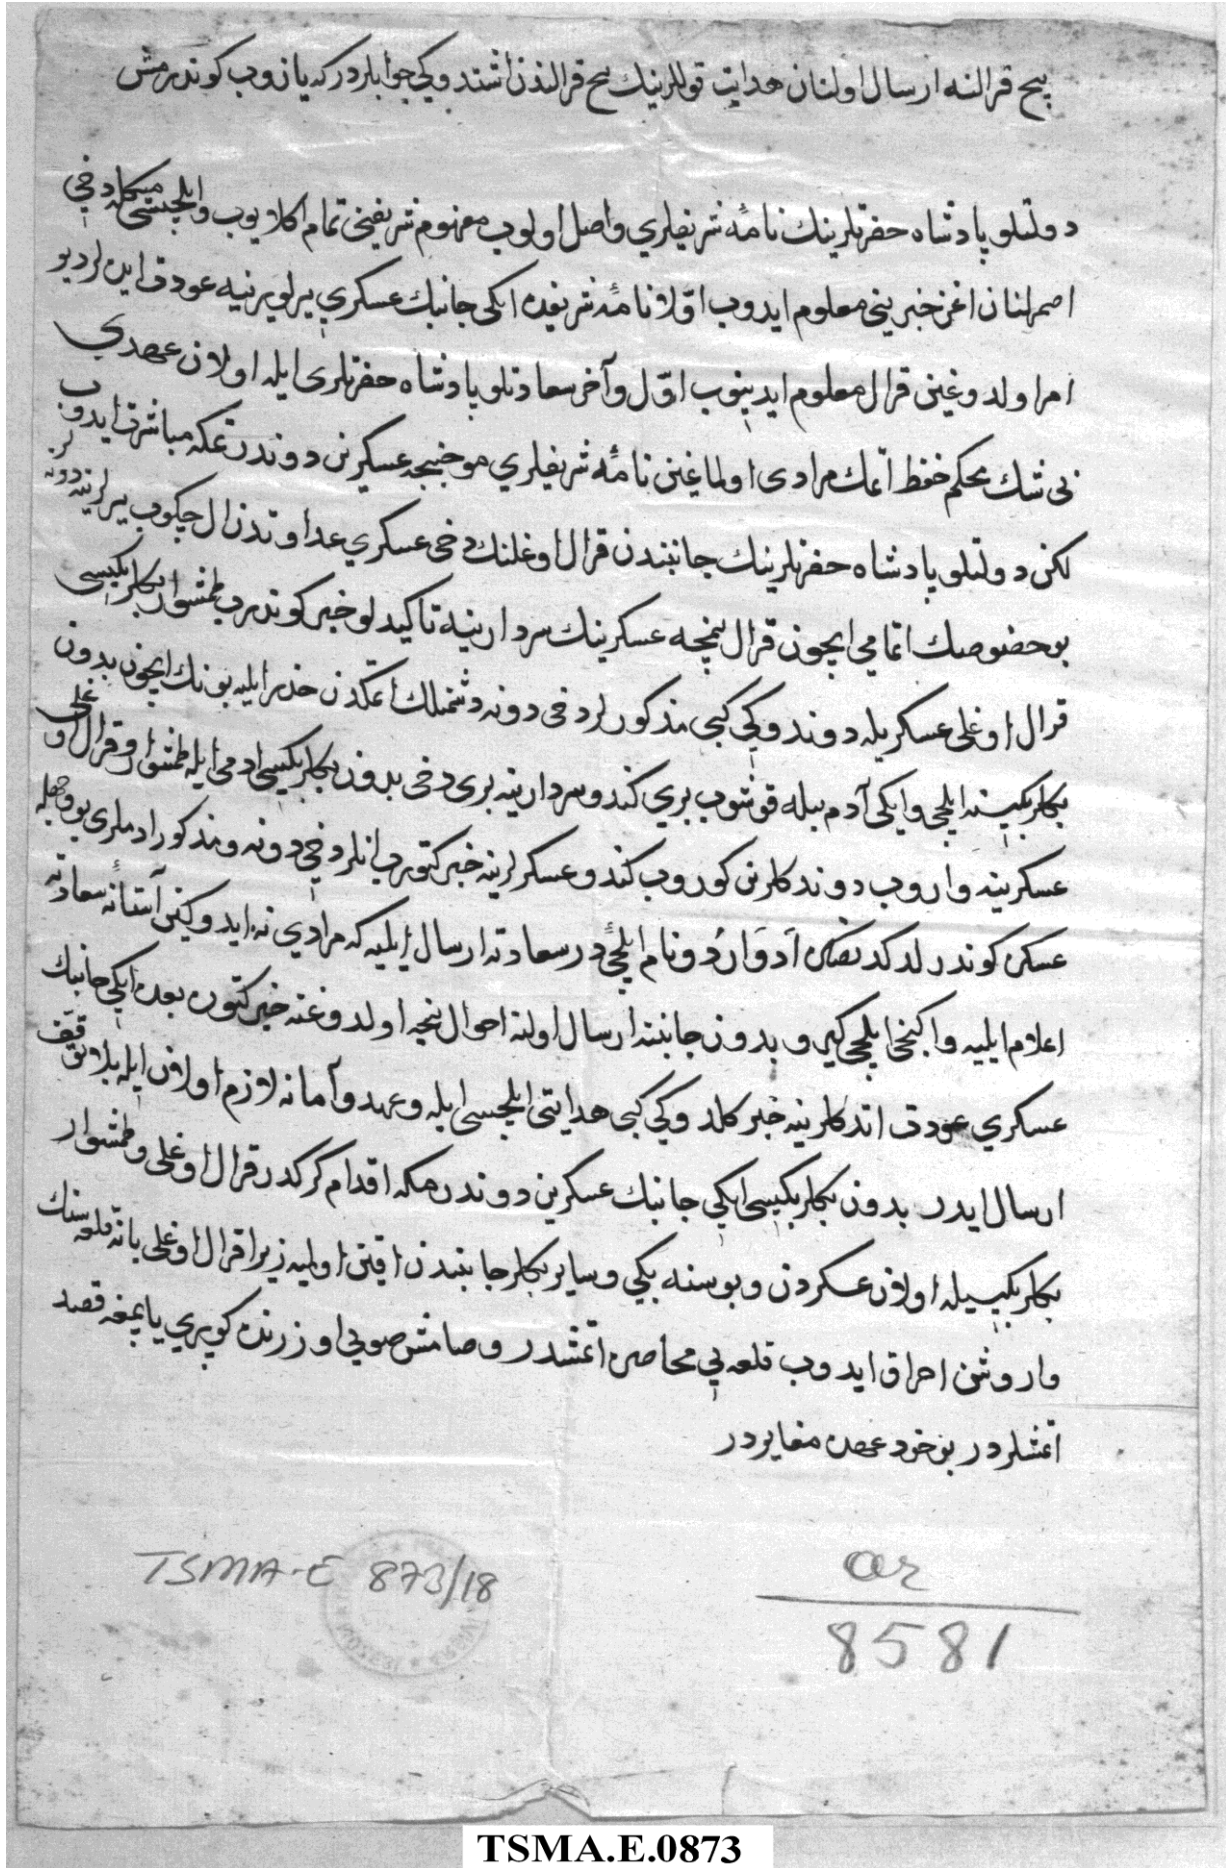 بیج قرالنه ارسال اولنان هدایت قوللرینك بیج قرالندن اشتدوکی جوابلردر که یازوب کوندرمش
دولتلو پادشاه حضرتلرینك نامۀ شریفلری واصل اولوب مفهوم شریفینی تمام اکلایوب و ایلچیسی میکله دخی
اصمرلنان اغز خبرینی معلوم ایدوب اوّلا نامۀ شریفده ایکی جانبك عسکری یرلو یرینه عودت ایده لر دیو
امر اولدوغینی قرال معلوم ایدینوب اوّل و آخر سعادتلو پادشاه حضرتلری ایله اولان عهدی
بی شك محکم حفظ اتمك مرادی اولماغین نامۀ شریفلری موجبنجه عسکرین دوندرتمکه مباشرت ایدوب
لکن دولتلو پادشاه حضرتلرینك جانبندن قرال اوغلنك دخی عسکری عداوتدن ال چکوب یرلرینه دونه لر
بو خصوصك اتمامی ایچون قرال بیچه عسکرینك سردارینه تاکیدلو خبر کوندرب طمشوار بکلربکیسی
قرال اوغلی عسکریله دوندوکی کبی مذکورلر دخی دونه دشمنلك اتمکدن حذر ایلیه بونك ایچون بدون
بکلربکیسنه ایلچی و ایکی آدم بیله قوشوب بری کندو سردارینه بری دخی بدون بکلربکیسی ادمی ایله طمشوار و قرال اوغلی
عسکرینه واروب دوندکلرین کوروب کندو عسکرلرینه خبر کتورب انلر دخی دونه و مذکور ادملری بو وجهله
عسکره کوندرلدکدنصکره اَدوَاردو نام ایلچیٔ در سعادته ارسال ایلیه که مرادی نه ایدوکینی آستانۀ سعادته
اعلام ایلیه و اکنجی ایلچی کیرو بدون جانبنه ارسال اولنه احوال نیجه اولدوغنه خبر کتوره بعده ایکی جانبك
عسکری عودت اتدکلرینه خبر کلدوکی کبی هدایتی ایلچیسی ایله و عهد و آمانه لازم اولان ایله بلا توقّف
ارسال ایدر بدون بکلربکیسی ایکی جانبك عسکرین دوندرمکه اقدام کرکدر قرال اوغلی و طمشوار
بکلربکیسیله اولان عسکردن و بوسنه بکی و سایر بکلر جانبندن اقین اولمیه زیرا قرال اوغلی بانه قلعه سنك
واروشن احراق ایدوب قلعه یی محاصره اتمشدر و صامش صویی اوزرنده کوپری یاپمغه قصد
اتمشلردر بو خود عهده مغایردر
TSMA-E 873/18
ar
8581
TSMA.E.0873